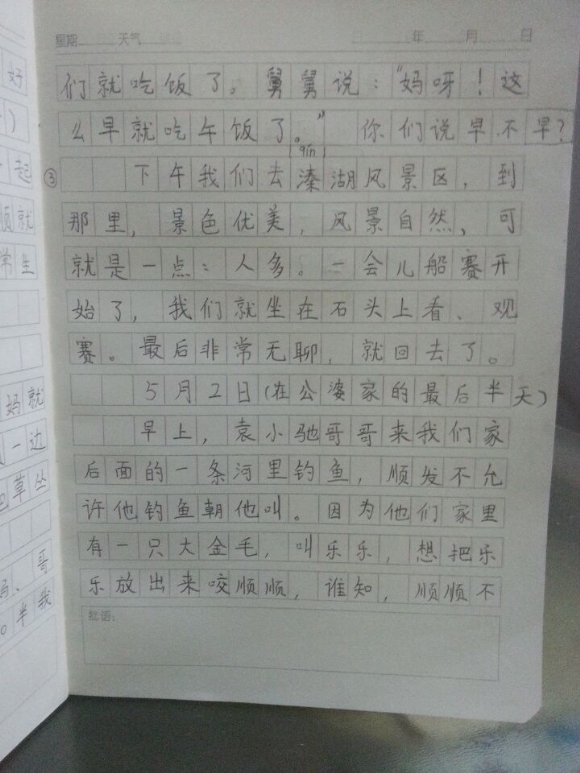 星期 天气 年 月 日
们就吃饭了。舅舅说：“妈呀！这
么早就吃午饭了。” 你们说早不早？
qín
③ 下午我们去溱湖风景区，到
那里，景色优美，风景自然，可
就是一点：人多。一会儿船赛开
始了，我们就坐在石头上看、观
赛。最后非常无聊，就回去了。
5月2日(在公婆家的最后半天)
早上，袁小驰哥哥来我们家
后面的一条河里钓鱼，顺发不允
许他钓鱼朝他叫。因为他们家里
有一只大金毛，叫乐乐，想把乐
乐放出来咬顺顺，谁知，顺顺不
批语：
好
）
起
顺就
常生
妈就
一边
草丛
妈、哥
半我